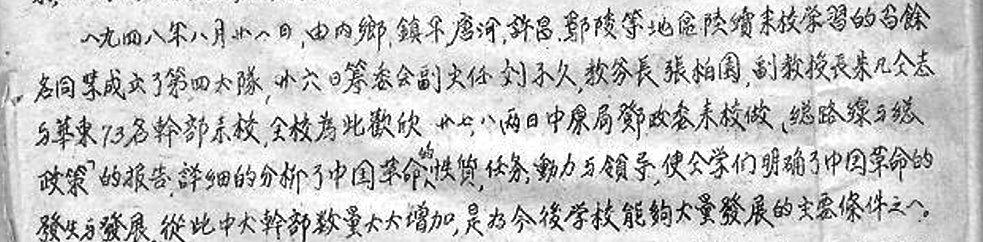 一九四八年八月廿八日,由内鄉,鎮平,唐河,許昌,鄢陵等地區陸續來校学習的百餘
名同学成立了第四大隊,廿六日筹委会副主任刘子久,教务長張柏園,副教授長朱凡仝志
与華東73名幹部來校,全校為此歡欣 廿七,八兩日中原局鄧政委來校做「総路線与総
政策」的报告,詳細的分析了中国革命的性質,任务,動力与領导,使仝学们明确了中国革命的
發生与發展,從此中大幹部数量大大增加,是为今後学校能夠大量發展的主要條件之一。